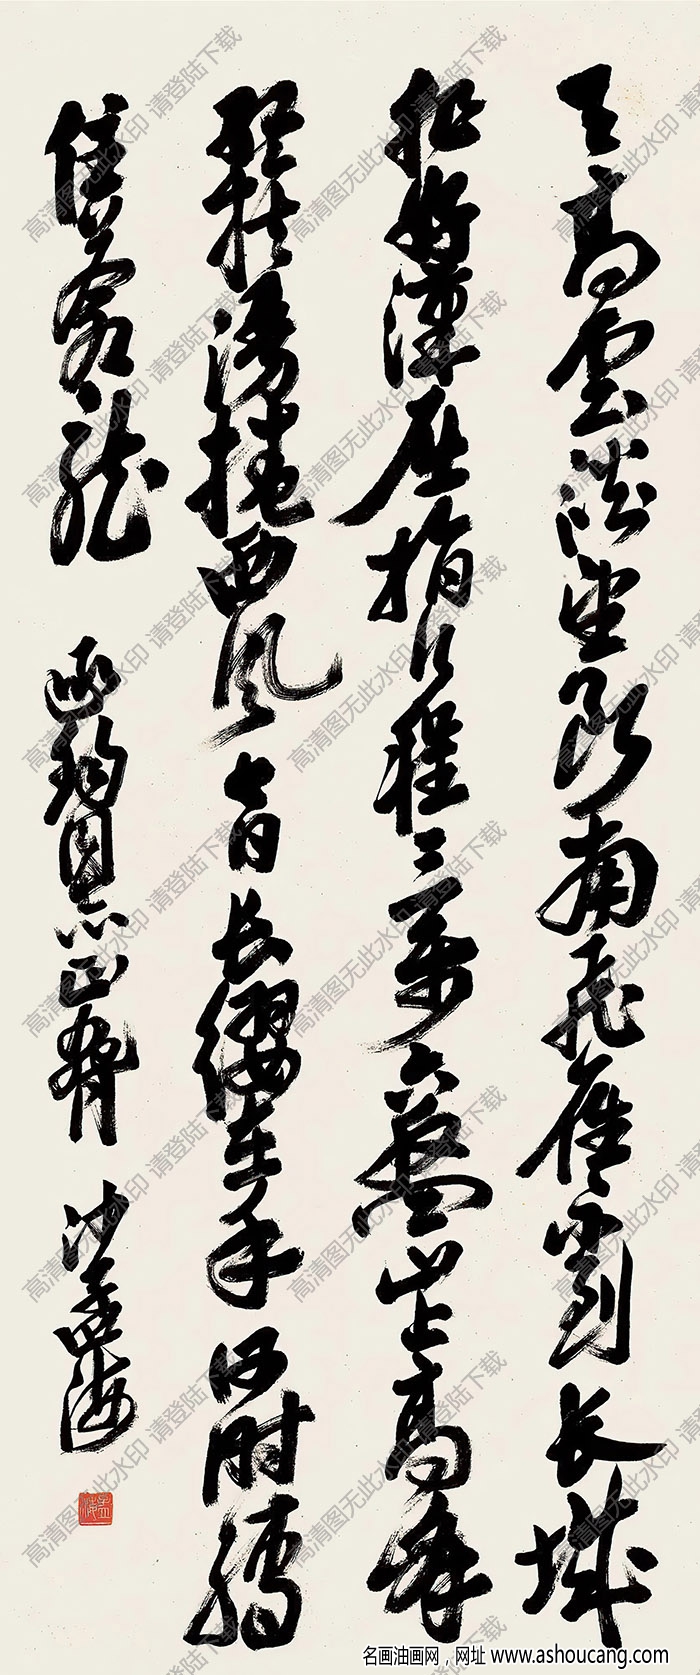 天高雲淡望断南飛雁不到长城
非好漢屈指行程二萬六盤山上高峰
紅旗漫捲西風今日长纓在手何时縛
住蒼龍 同志正腕 沙孟海
孟海
高清图无此水印 请登陆下载
名画油画网，网址 www.ashoucang.com